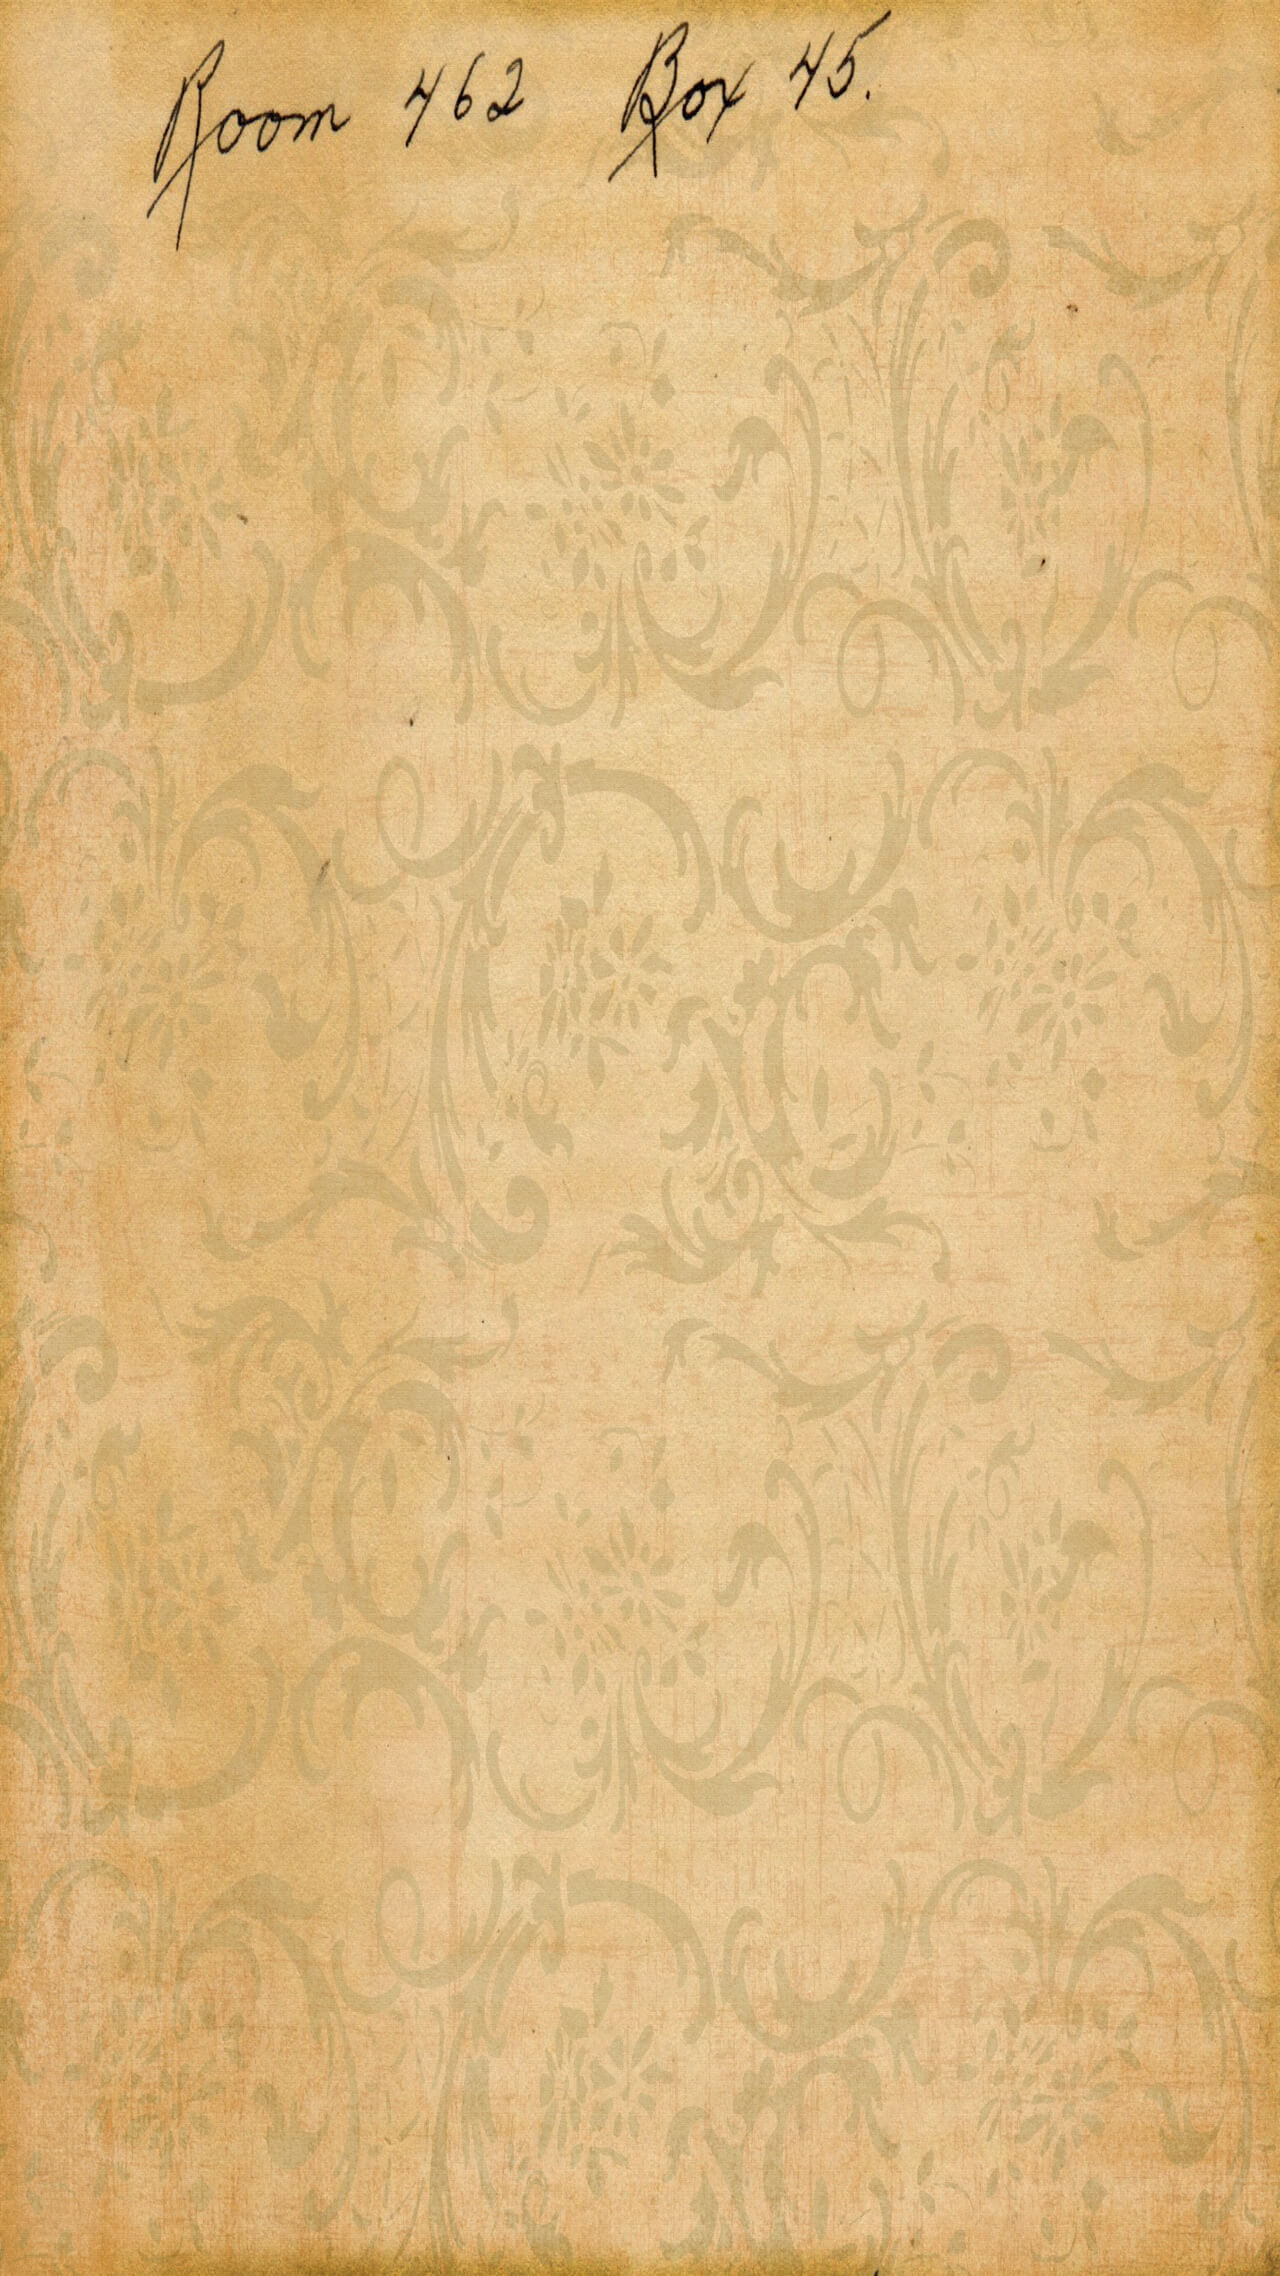 Room 462 Box 45.